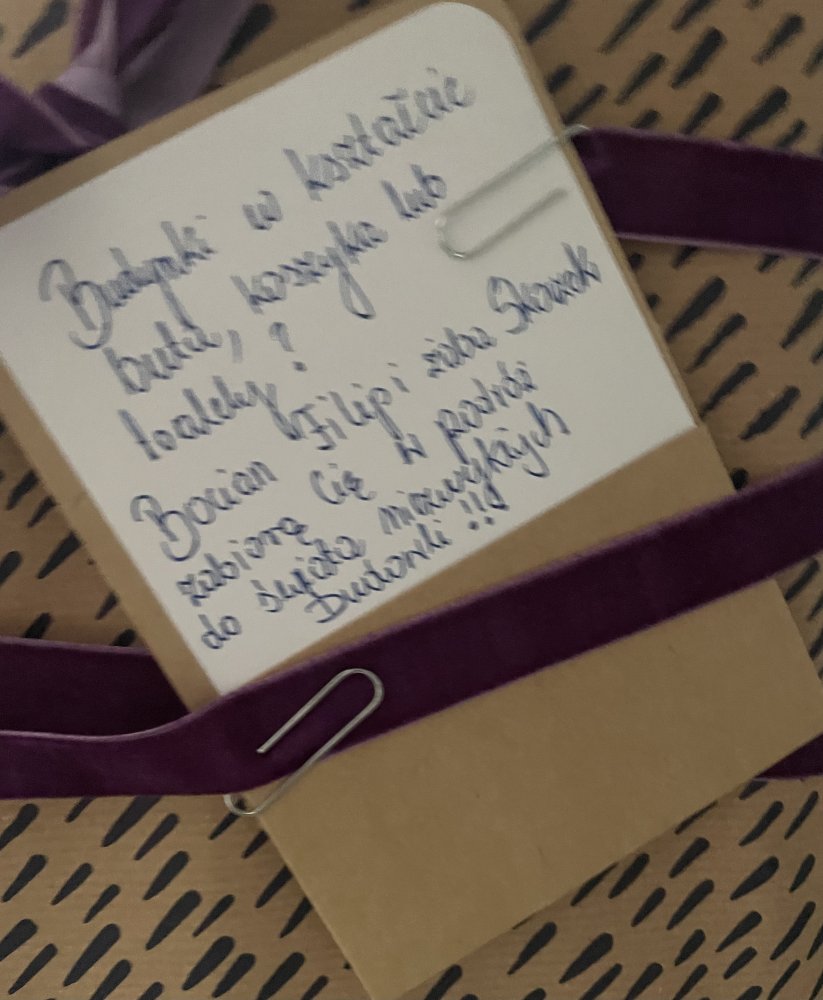 Budynki w kształcie
buta, koszyka lub
toalety?
Bocian Filip i żaba Skoczek
zabiorą Cię w podróż
do świata niezwykłych
Budowli!!!